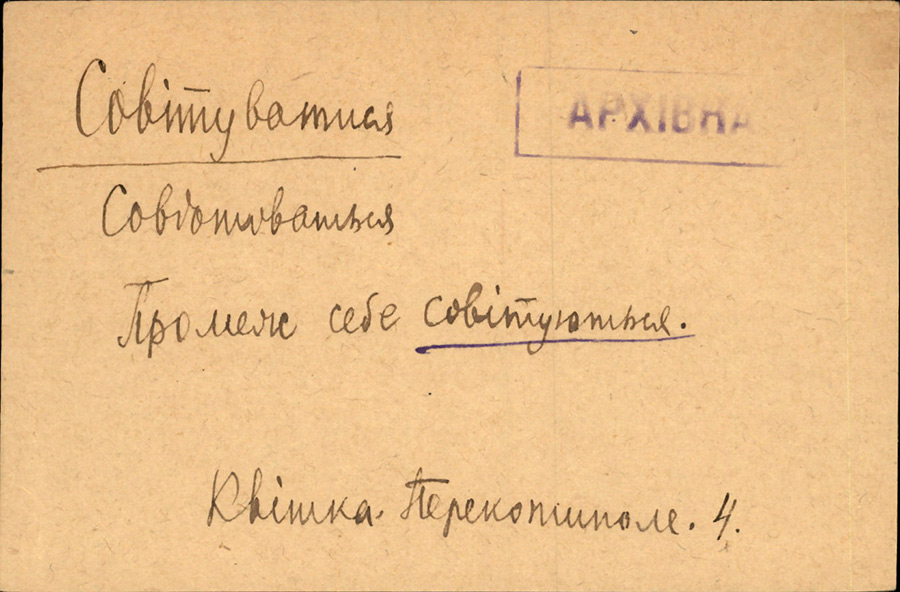 Совітуватися
АРХІВНА
Совѣтоваться
Промеж себе совітуються.
Квітка. Перекотиполе. 4.